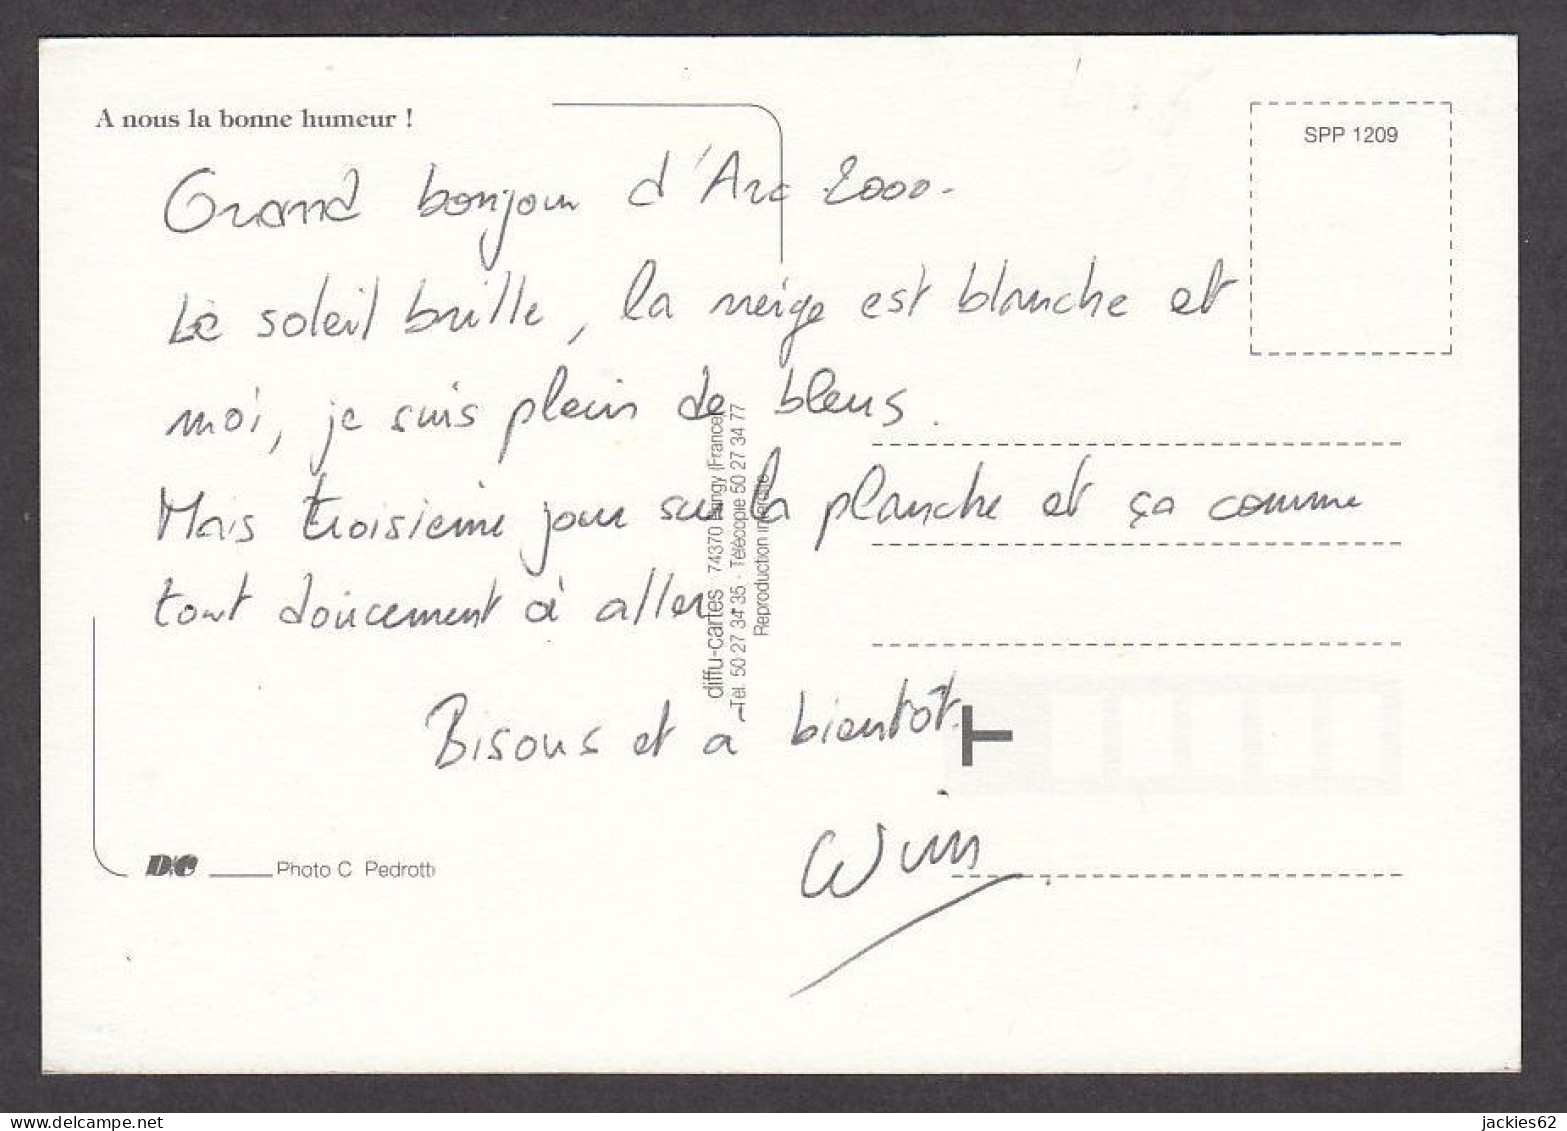 A nous la bonne humeur !
SPP 1209
Grand bonjour d'Arc 2000.
Le soleil brille, la neige est blanche et
moi, je suis plein de bleus.
Mais troisième jour sur la planche et ça comme
tout doucement à aller.
Bisous et a bientôt.
Wim
diffu-cartes 74370 (France)
Tél. 50 27 34 35 - Télécopie 50 27 34 77
Reproduction interdite
D/C Photo C Pedrotti
jackies62